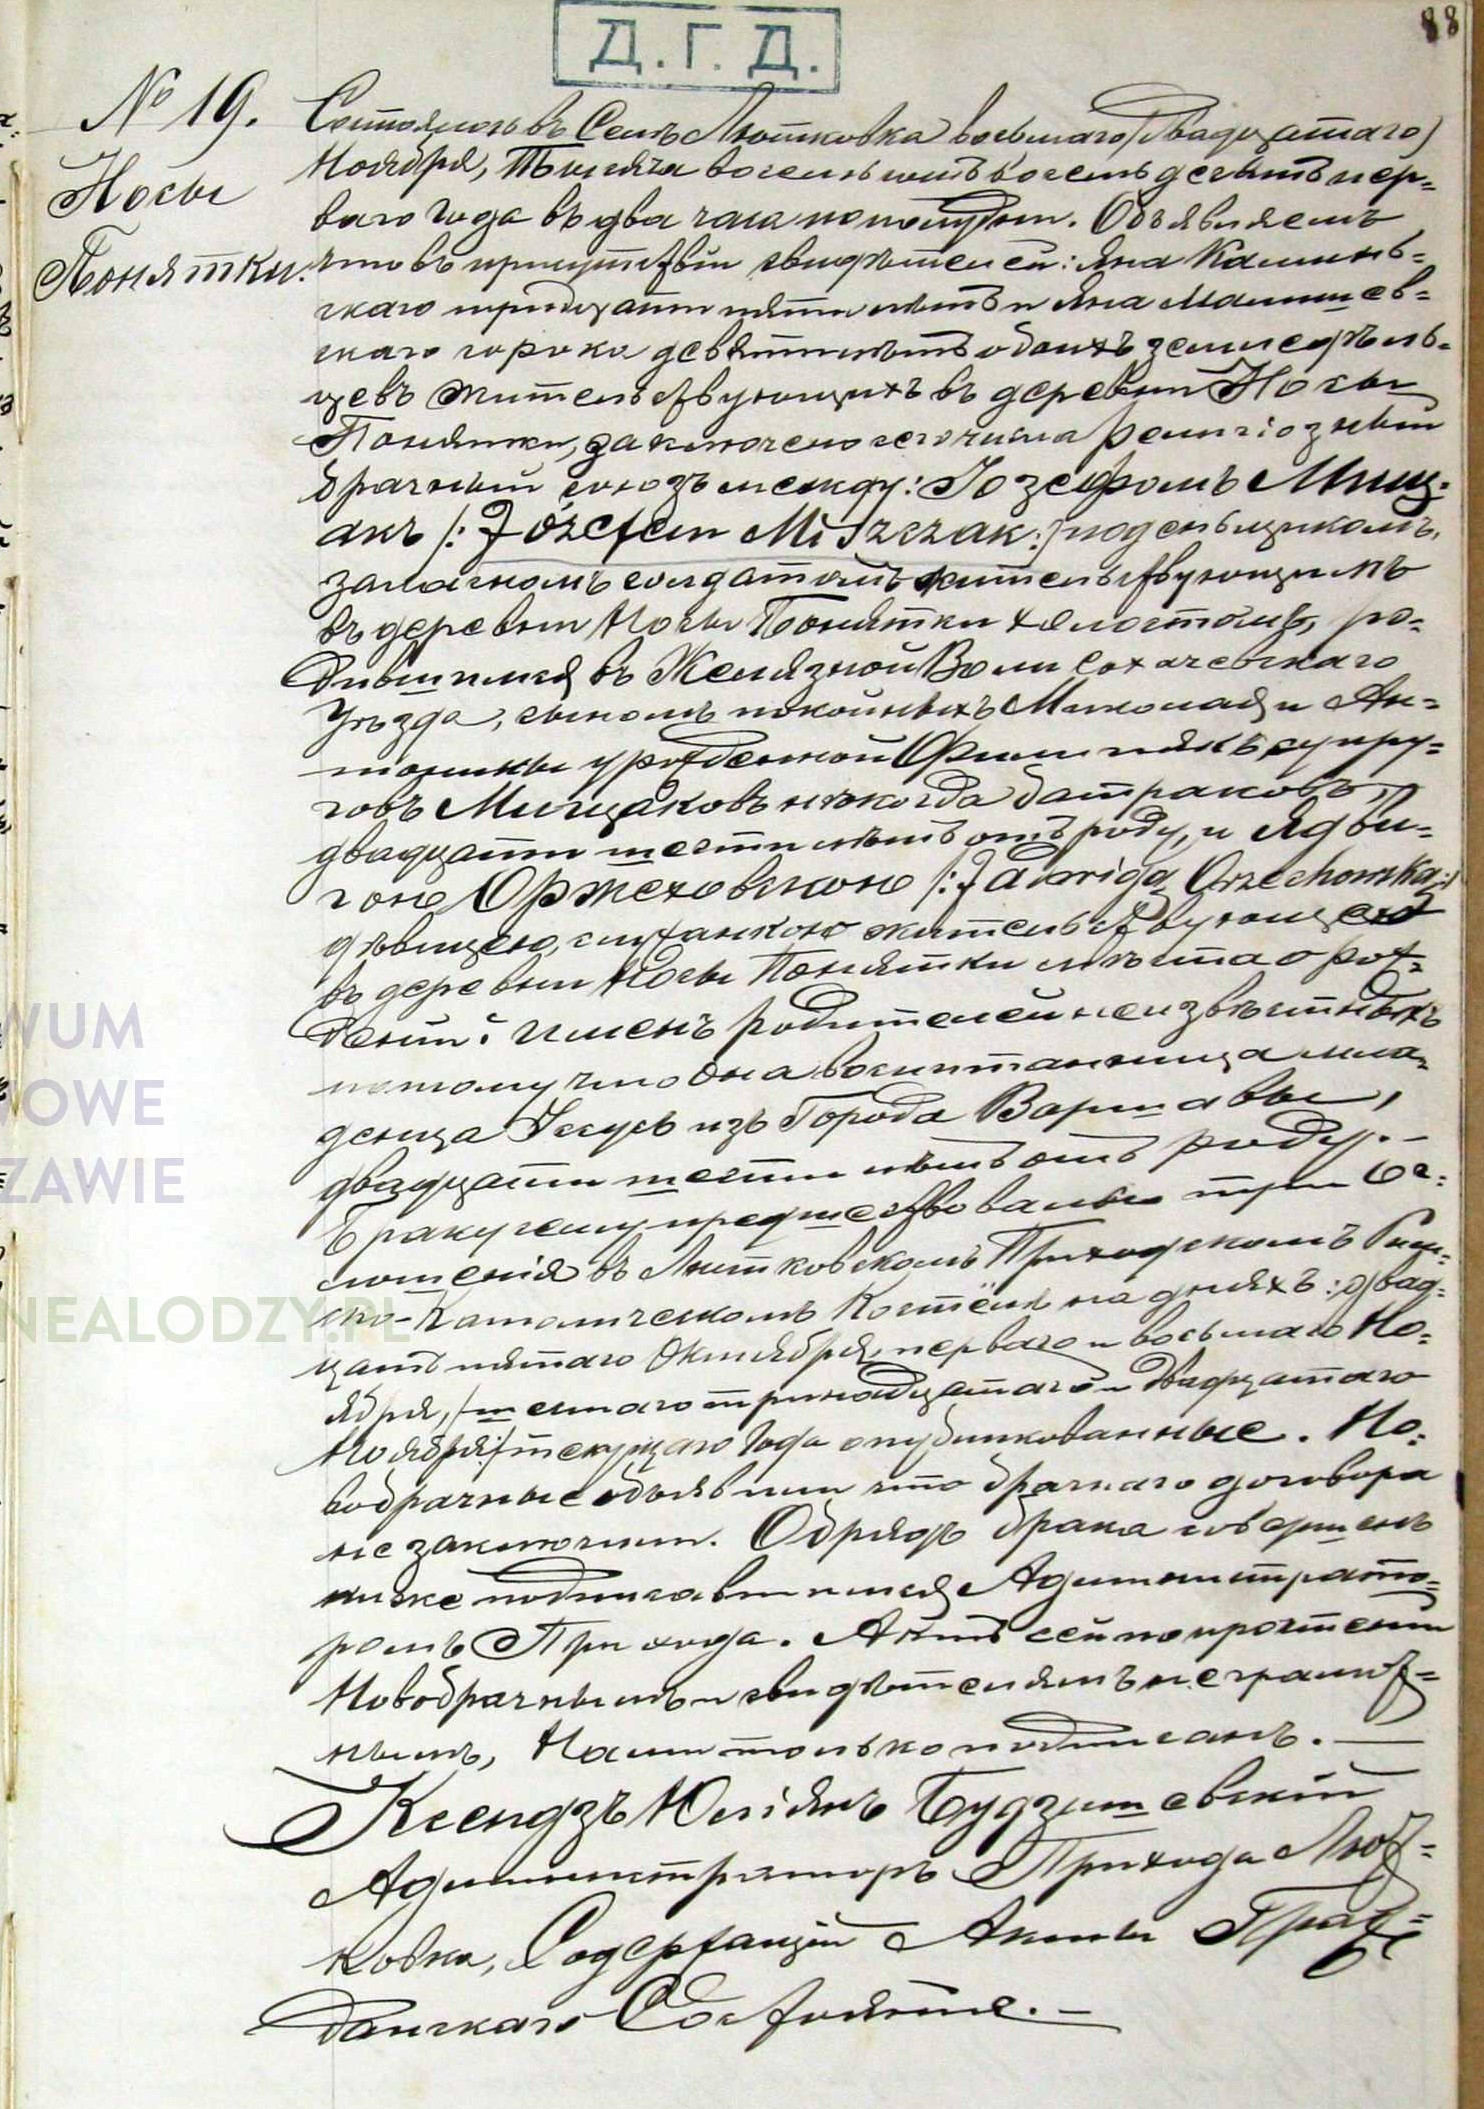 Д.Г.Д.
88
№ 19.
Носы
Понятки.
Состоялось въ Селѣ Лютковка восьмаго (двадцатаго)
Ноября, Тысяча восемьсотъ восемьдесятъ пер=
ваго Года въ два часа пополудни. Объявляемъ
что въ присутствіи свидѣтелей: Яна Каминь=
скаго тридцати пяти лѣтъ и Яна Малишев=
скаго сорока девяти лѣтъ обоихъ земледѣль=
цевъ жительствующихъ въ деревни Носы
Понятки, заключено сего числа религіозный
брачный союзъ между: Іозефомъ Мищ=
акъ /: Józefem Miszczak :/ поденьщикомъ,
запаснымъ солдатомъ жительствующимъ
въ деревни Носы Понятки холостымъ, ро=
дившимся въ Желязной Воли Сохачевскаго
Уѣзда, сыномъ покойныхъ Миколая и Ан=
тонины урожденной Филипякъ супру=
говъ Мищаковъ нѣкогда батраковъ,
двадцати шести лѣтъ отъ роду, и Ядви=
гою Оржеховскою /: Jadwigą Orzechowską :/
дѣвицею, служанкою жительствующею
въ деревни Носы Понятки мѣста о рож=
деній и именъ родителей неизвѣстныхъ
потому что она воспитанница мла=
денца Іисусъ изъ Города Варшавы,
двадцати шести лѣтъ отъ роду. —
Браку сему предшествовали три ог=
лошенія въ Лютковскомъ Приходскомъ Рим=
ско-Католическомъ Костёлѣ на дняхъ: двад=
цать пятаго Октября, перваго и восьмаго Но=
ября, /шестаго тринадцатаго и двадцатаго
Ноября:/ текущаго Года опубликованные. Но=
вобрачные объявили что брачнаго договора
не заключили. Обрядъ брака совершенъ
ниже подписавшимся Администрато=
ромъ Прихода. Актъ сей по прочтеніи
Новобрачнымъ и свидѣтелямъ неграмот=
нымъ, Нами только подписанъ. —
Ксендзъ Юліянъ Будзишевскій
Администраторъ Прихода Лют=
ковка, Содержащій Акты Граж=
данскаго Состоянія. —
WUM
WOWE
ZAWIE
NEALODZY.PL